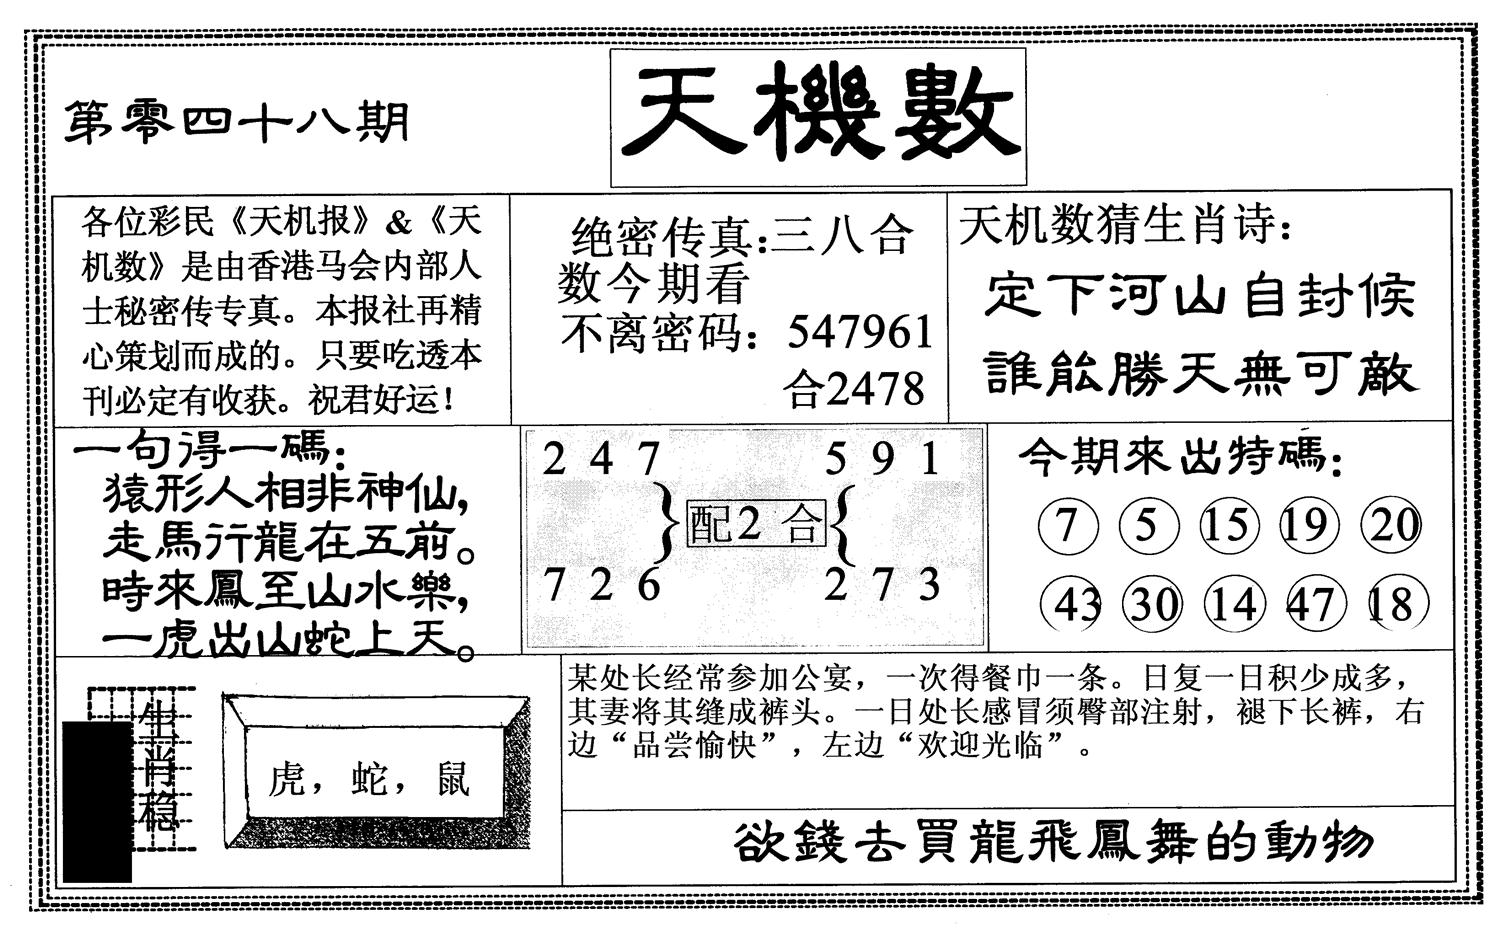 第零四十八期
天機數
各位彩民《天机报》&《天
机数》是由香港马会内部人
士秘密传专真。本报社再精
心策划而成的。只要吃透本
刊必定有收获。祝君好运！
绝密传真:三八合
数今期看
不离密码：547961
合2478
天机数猜生肖诗：
定下河山自封候
誰能勝天無可敵
一句得一碼:
猿形人相非神仙，
走馬行龍在五前。
時來鳳至山水樂，
一虎出山蛇上天。
247 591
}配2 合{
726 273
今期來出特碼:
7 5 15 19 20
43 30 14 47 18
生肖稳
虎，蛇，鼠
某处长经常参加公宴，一次得餐巾一条。日复一日积少成多，
其妻将其缝成裤头。一日处长感冒须臀部注射，褪下长裤，右
边“品尝愉快”，左边“欢迎光临”。
欲錢去買龍飛鳳舞的動物